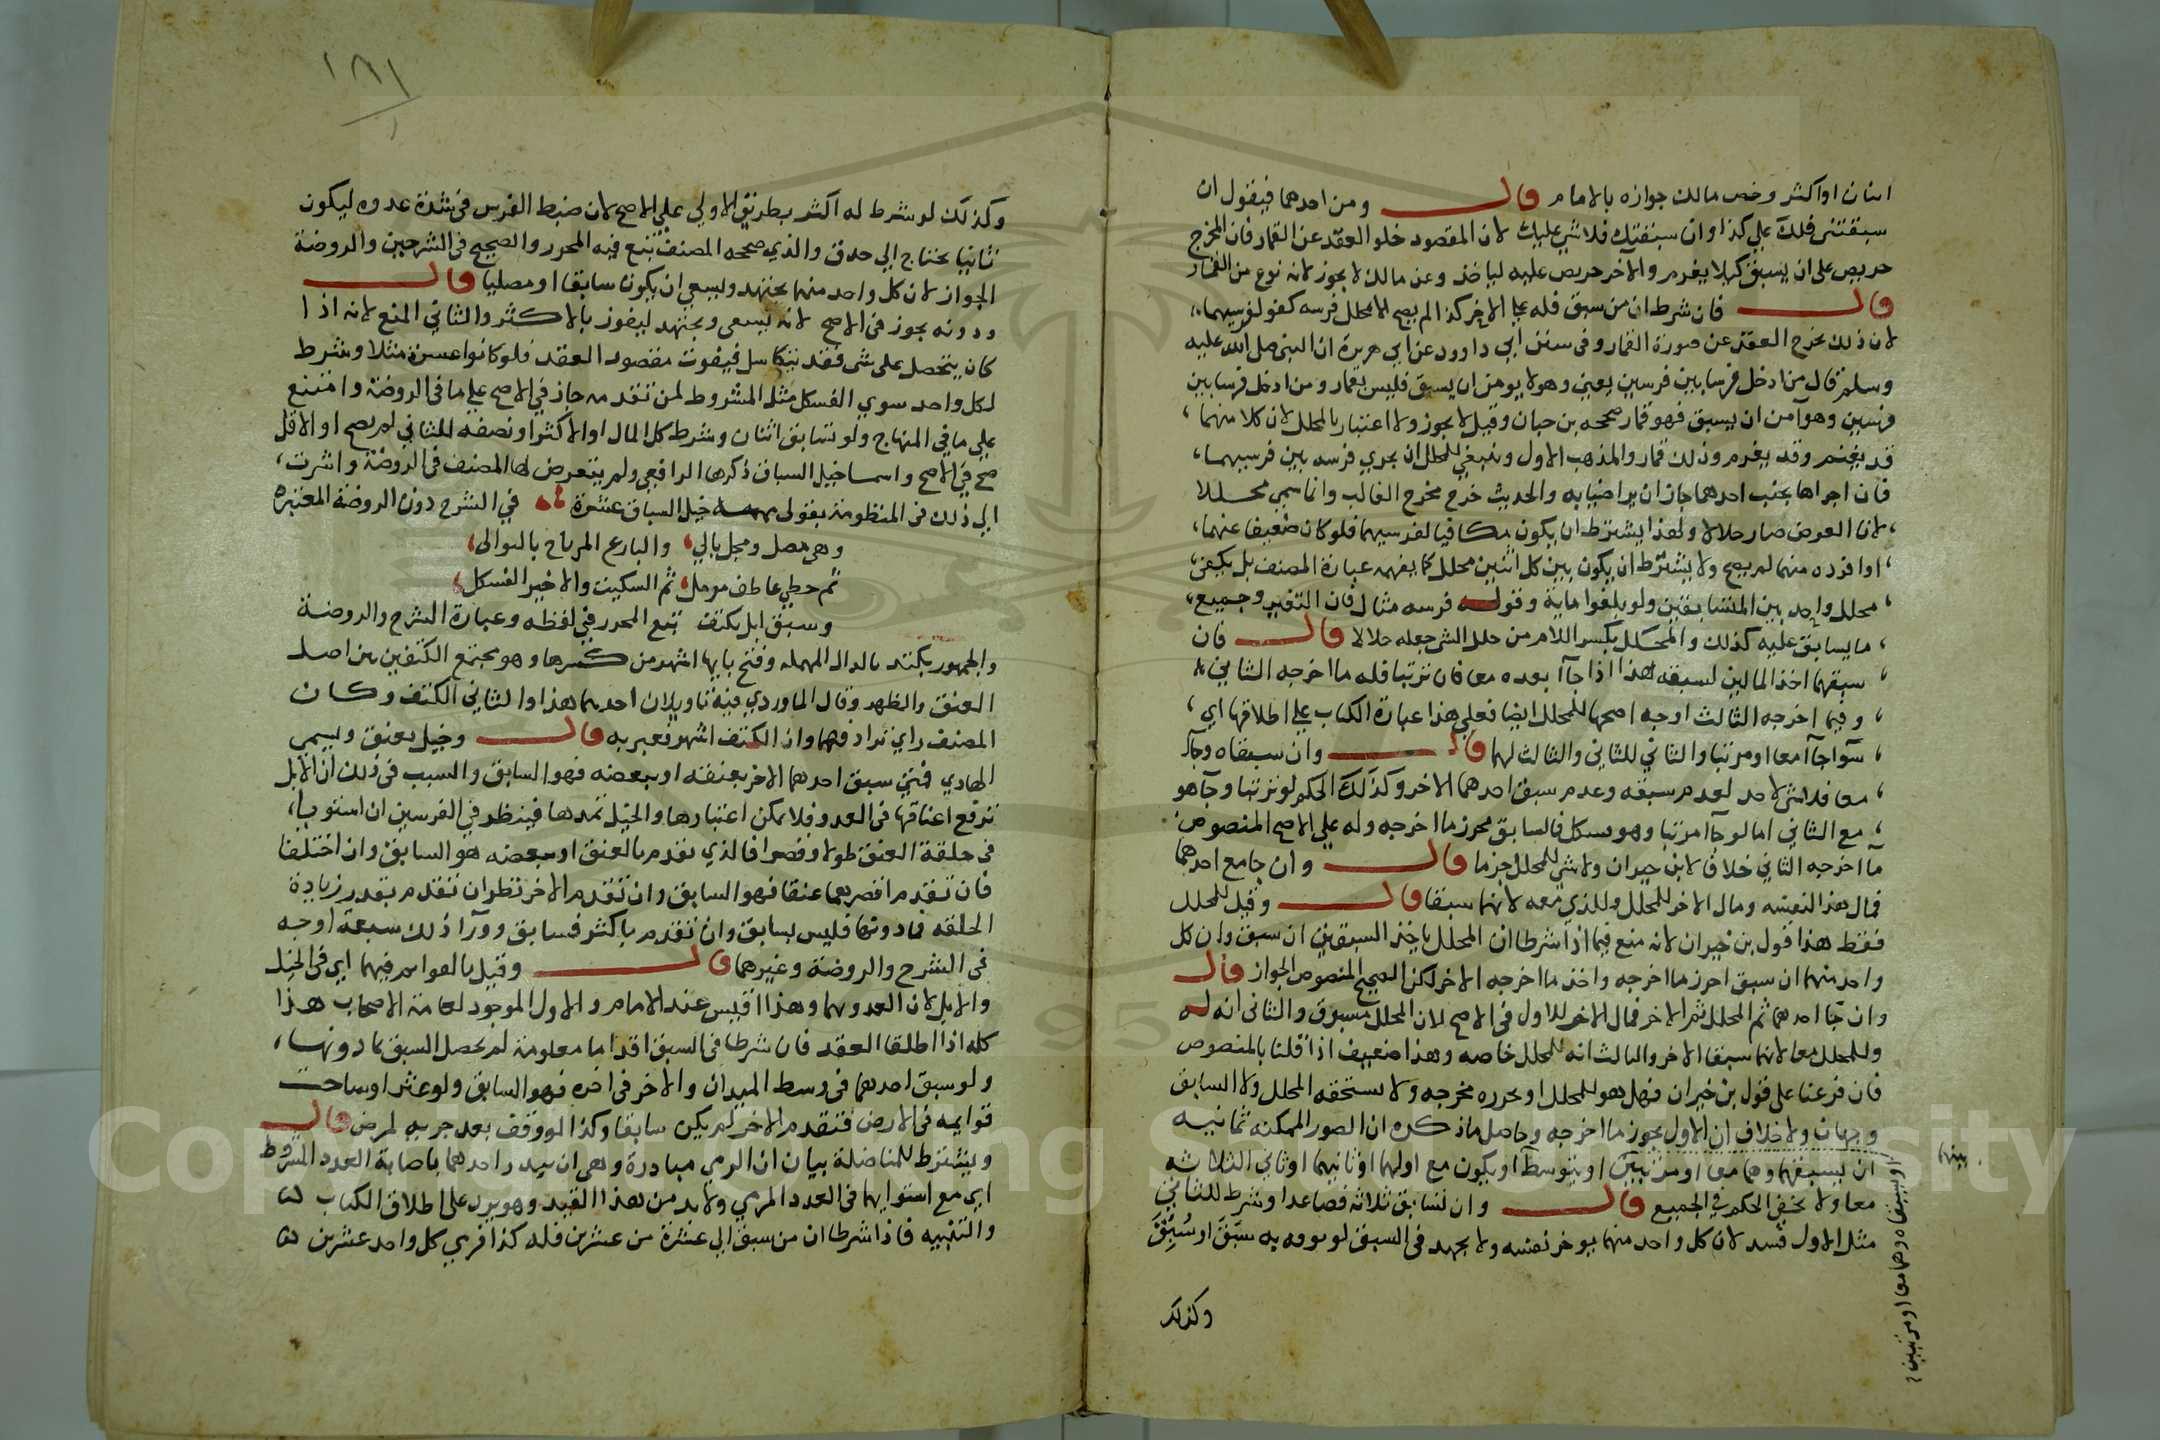 اثنان او اكثر وخص مالك جوازه بالامام قال ومن احدهما فيقول ان
سبقتني فلك علي كذا وان سبقتك فلا شي عليك لان المقصود خلو العقد عن القمار فان المخرج
حريص على ان يسبق كيلا يغرم والآخر حريص عليه لياخذ وعن مالك لا يجوز لانه نوع من القمار
قال فان شرط ان من سبق فله على الاخر كذا لم يصح الا بمحلل فرسه كفو لفرسيهما
لان ذلك يخرج العقد عن صورة القمار وفي سنن ابي داوود عن ابي هريرة ان النبي صلى الله عليه
وسلم قال من ادخل فرسا بين فرسين يعني وهو لا يومن ان يسبق فليس بقمار ومن ادخل فرسا بين
فرسين وهو آمن ان يسبق فهو قمار صححه بن حبان وقيل لا يجوز ولا اعتبار بالمحلل لان كلا منهما
قد يغنم وقد يغرم وذلك قمار والمذهب الاول وينبغي للمحلل ان يجري فرسه بين فرسيهما
فان اجراها بجنب احدهما جاز ان يراضيا به والحديث خرج مخرج الغالب وانما سمي محللا
لان العوض صار حلالا ولهذا يشترط ان يكون مكافيا لفرسيهما فلو كان ضعيفا عنهما
او افره منهما لم يصح ولا يشترط ان يكون بين كل اثنين محلل كما يفهمه عبارة المصنف بل يكفي
محلل واحد بين المتسابقين ولو بلغوا ماية وقوله فرسه مثال فان التفير وجميع
ما يسابق عليه كذلك والمحلل بكسر اللام من حلل الشي جعله حلالا قال فان
سبقهما اخذ المالين لسبقه هذا اذا جاآ بعده معا فان ترتبا فله ما اخرجه الثاني
وفيما اخرجه الثالث اوجه اصحها للمحلل ايضا فعلى هذا عبارة الكتاب على اطلاقها اي
سوآ جاآ معا او مرتبا والثاني للثاني والثالث لهما قال وان سبقاه وجآ
معا فلا شي لاحد لعدم سبقه وعدم سبق احدهما الاخر وكذلك الحكم لو ترتبا وجآ هو
مع الثاني اما لو جاآ مرتبا وهو فسكل فالسابق محرز ما اخرجه وله على الاصح المنصوص
ما اخرجه الثاني خلافا لابن خيران ولا شي للمحلل جزما قال وان جا مع احدهما
فمال هذا لنفسه ومال الاخر للمحلل وللذي معه لانهما سبقا قال وقيل للمحلل
فقط هذا قول بن خيران لانه منع فيما اذا شرطا ان المحلل ياخذ السبقين ان سبق وان كل
واحد منهما ان سبق احرز ما اخرجه واخذ ما اخرجه الاخر لكن الصحيح المنصوص الجواز قال
وان جا احدهما ثم المحلل ثم الاخر فمال الاخر للاول في الاصح لان المحلل مسبوق والثاني انه له
وللمحلل معا لانهما سبقا الاخر والثالث انه للمحلل خاصه وهذا ضعيف اذا قلنا بالمنصوص
فان فرعنا على قول بن خيران فهل هو للمحلل او يحرزه مخرجه ولا يستحقه المحلل ولا السابق
وجهان ولا خلاف ان الاول يحوز ما اخرجه وحاصل ما ذكره ان الصور الممكنه ثمانيه
ان يسبقهما وهما معا او مرتبين او يتوسط او يكون مع اولهما او ثانيهما او ثاني الثلاثه
معا ولا يخفى الحكم في الجميع قال وان تسابق ثلاثه فصاعدا وشرط للثاني
مثل الاول فسد لان كل واحد منهما يوخر نفسه ولا يجهد في السبق لوثوقه به سَبَقَ او سُبِقَ
وكذلك
بينهما
او يسبقاه وهما معا او مرتبين
١٨١
وكذلك لو شرط له اكثر بطريق الاولي على الاصح لان ضبط الفرس في شدة عدوه ليكون
ثانيا يحتاج الي حذق والذي صححه المصنف تبع فيه المحرر والصحيح في الشرحين والروضة
الجواز لان كل واحد منهما يجتهد ويسعي ان يكون سابقا او مصليا قال
ودونه يجوز في الاصح لانه يسعى ويجتهد ليفوز بالاكثر والثاني المنع لانه اذا
كان يتحصل على شي فقد يتكاسل فيفوت مقصود العقد فلو كانوا عشرة مثلا وشرط
لكل واحد سوي الفسكل مثل المشروط لمن تقدمه جاز في الاصح علي ما في الروضة وامتنع
علي ما في المنهاج ولو تسابق اثنان وشرط كل المال او الاكثر او نصفه للثاني لم يصح او الاقل
صح في الاصح واسما خيل السباق ذكرها الرافعي ولم يتعرض لها المصنف في الروضة واشرت
الي ذلك في المنظومة بقولي خيل السباق عشرة في الشرح دون الروضة المعتبره
وهي مصل ومجل بالي والبارع المرتاح بالتوالى
ثم حظي عاطف مومل ثم السكيت والاخير الفسكل
وسبق ابل بكتف تبع المحرر في لفظه وعبارة الشرح والروضة
والجمهور بكتد بالدال المهمله وفتح تايها اشهر من كسرها وهو مجتمع الكتفين بين اصل
العنق والظهر وقال الماوردي فيه تاويلان احدهما هذا والثاني الكتف وكان
المصنف راي ترادفهما وان الكتف اشهر فعبر به قال وخيل بعنق ويسمي
الهادي فمتي سبق احدهما الاخر بعنقه او ببعضه فهو السابق والسبب في ذلك ان الابل
ترفع اعناقها في العدو فلا يمكن اعتبارها والخيل تمدها فينظر في الفرسين ان استويا
في خلقة العنق طولا وقصرا فالذي تقدم بالعنق او ببعضه هو السابق وان اختلفا
فان تقدم اقصرهما عنقا فهو السابق وان تقدم الاخر نظر ان تقدم بقدر زيادة
الخلقه فما دونها فليس بسابق وان تقدم باكثر فسابق وورآ ذلك سبعة اوجه
في الشرح والروضة وغيرهما قال وقيل بالقوايم فيهما اي في الخيل
والابل لان العدو بهما وهذا اقيس عند الامام والاول الموجود لعامة الاصحاب هذا
كله اذا اطلقا العقد فان شرطا في السبق اقداما معلومة لم يحصل السبق بما دونها
ولو سبق احدهما في وسط الميدان والاخر في اخره فهو السابق ولو عثر او ساخت
قوايمه في الارض فتقدم الاخر لم يكن سابقا وكذا لو وقف بعد جريه لمرض قال
ويشترط للمناضلة بيان ان الرمي مبادرة وهي ان يبدر احدهما باصابة العدد المشروط
اي مع استوايهما في العدد المرمي ولا بد من هذا القيد وهو يرد على اطلاق الكتاب
والتنبيه فاذا شرطا ان من سبق الي عشرة من عشرين فله كذا فرمي كل واحد عشرين